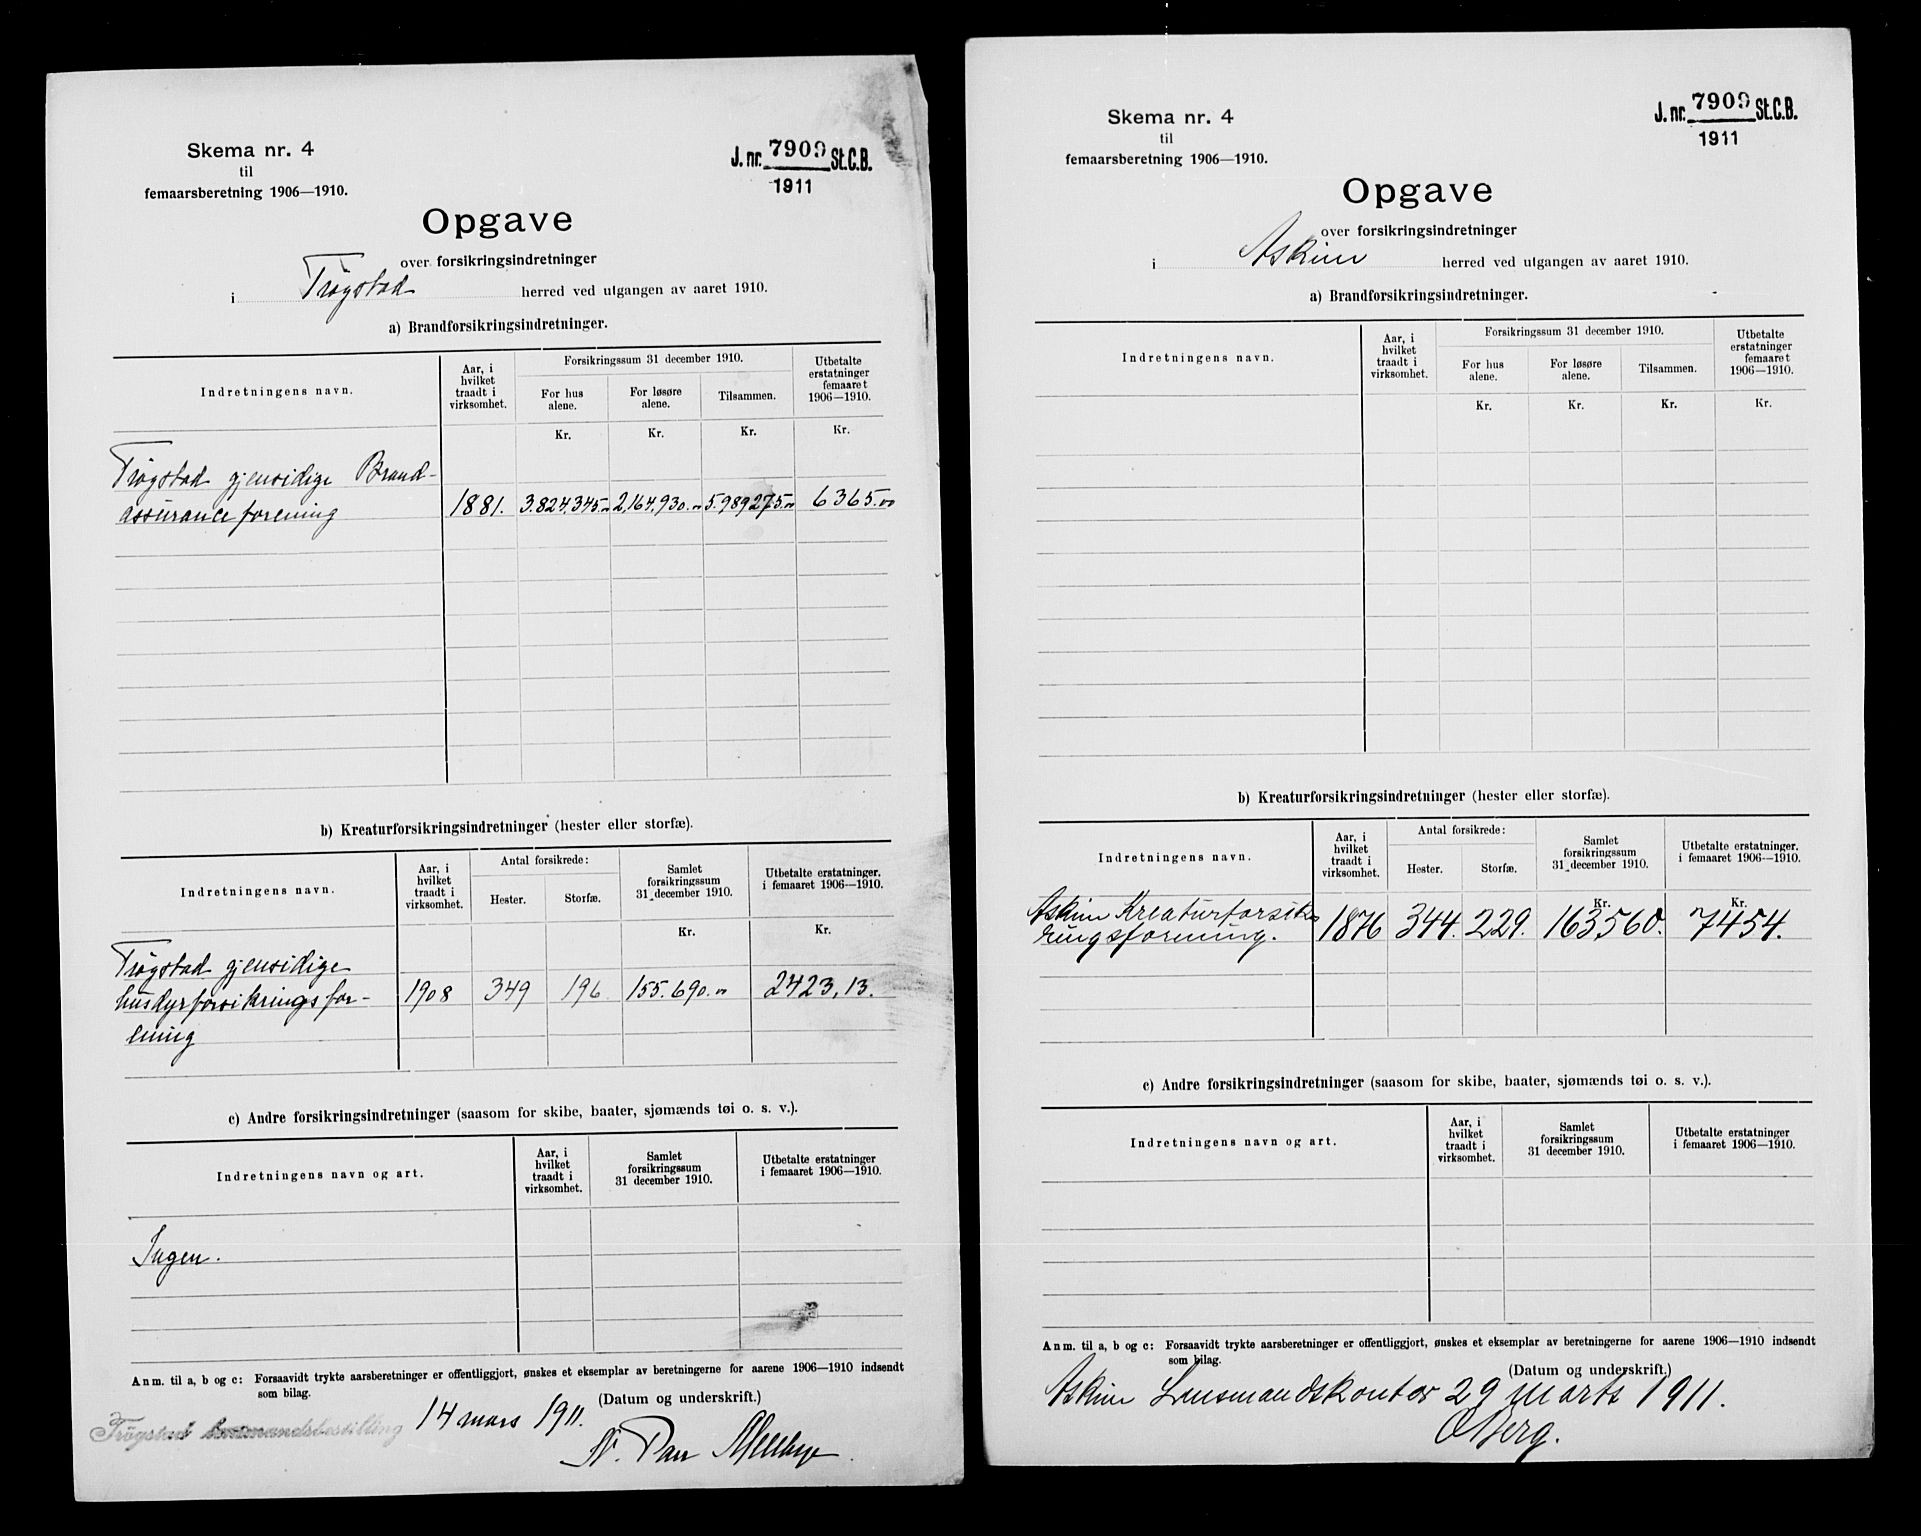 Skema nr. 4
til
femaarsberetning 1906—1910.
J. nr. 7909 St. C. B.
1911
Opgave
over forsikringsindretninger
i Trøgstad herred ved utgangen av aaret 1910.
a) Brandforsikringsindretninger.
Indretningens navn.
Aar, i
hvilket
traadt i
virksomhet.
Forsikringssum 31 december 1910.
For hus
alene.
For løsøre
alene.
Tilsammen.
Utbetalte
erstatninger
femaaret
1906—1910.
Kr. Kr. Kr. Kr.
Trøgstad gjensidige Brand-
assuranceforening 1881. 3.824,345.00 2,164,930.00 5.989275.00 6365.00
b) Kreaturforsikringsindretninger (hester eller storfæ).
Indretningens navn.
Aar, i
hvilket
traadt i
virksomhet.
Antal forsikrede:
Hester. Storfæ.
Samlet
forsikringssum
31 december 1910.
Utbetalte erstatninger.
i femaaret 1906—1910.
Kr. Kr.
Trøgstad gjensidige
husdyrforsikringsfor- 1908 349 196 155.690.00 2423,13.
ening
c) Andre forsikringsindretninger (saasom for skibe, baater, sjømænds tøi o. s. v.).
Indretningens navn og art.
Aar, i
hvilket
traadt i
virksomhet.
Samlet
forsikringssum
31 december 1910.
Utbetalte erstatninger
i femaaret 1906—1910.
Ingen.
Anm. til a, b og c: Forsaavidt trykte aarsberetninger er offentliggjort, ønskes et eksemplar av beretningerne for aarene 1906—1910 indsendt
som bilag.
(Datum og underskrift.)
Trøgstad lensmandsbestilling 14 mars 1911.
N. Mellbye
Skema nr. 4
til
femaarsberetning 1906—1910.
J. nr. 7909 St. C. B.
1911
Opgave
over forsikringsindretninger
i Askim herred ved utgangen av aaret 1910.
a) Brandforsikringsindretninger.
Indretningens navn.
Aar, i
hvilket
traadt i
virksomhet.
Forsikringssum 31 december 1910.
For hus
alene.
For løsøre
alene.
Tilsammen.
Utbetalte
erstatninger
femaaret
1906—1910.
Kr. Kr. Kr. Kr.
b) Kreaturforsikringsindretninger (hester eller storfæ).
Indretningens navn.
Aar, i
hvilket
traadt i
virksomhet.
Antal forsikrede:
Hester. Storfæ.
Samlet
forsikringssum
31 december 1910.
Utbetalte erstatninger.
i femaaret 1906—1910.
Kr. Kr.
Askim Kreaturforsik-
ringsforening. 1876 344. 229. 163,560. 7454.
c) Andre forsikringsindretninger (saasom for skibe, baater, sjømænds tøi o. s. v.).
Indretningens navn og art.
Aar, i
hvilket
traadt i
virksomhet.
Samlet
forsikringssum
31 december 1910.
Utbetalte erstatninger
i femaaret 1906—1910.
Anm. til a, b og c: Forsaavidt trykte aarsberetninger er offentliggjort, ønskes et eksemplar av beretningerne for aarene 1906—1910 indsendt
som bilag.
(Datum og underskrift.)
Askim Lensmandskontor 29 marts 1911.
O Berg.